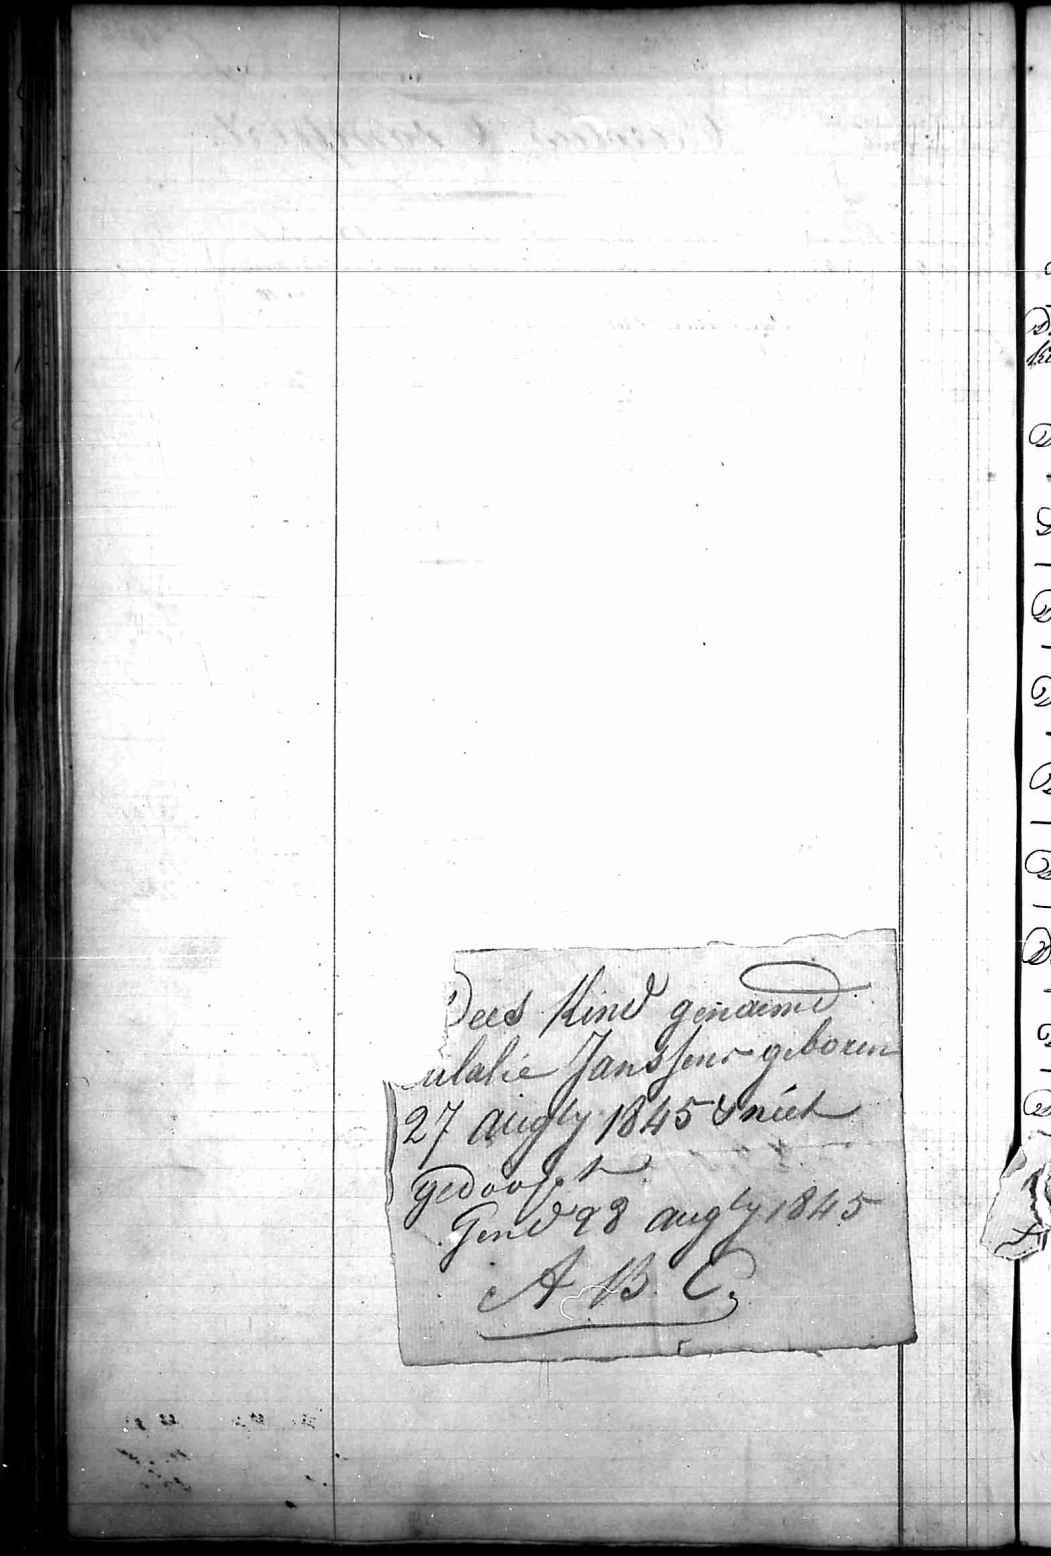 Dees Kind genaemd
ulalie Janssens geboren
27 augty 1845 & niet
gedoopt
Gend 28 augty 1845
A B C.